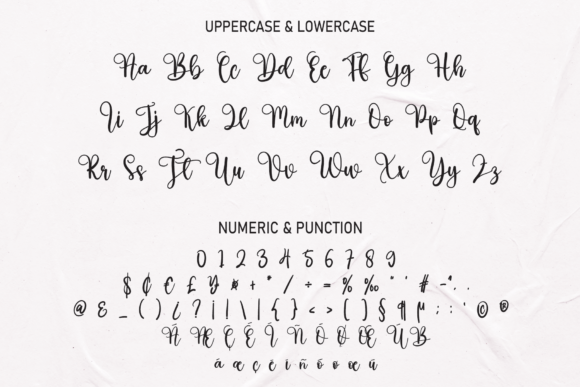 UPPERCASE & LOWERCASE
Aa Bb Cc Dd Ee Ff Gg Hh
Ii Jj Kk Ll Mm Nn Oo Pp Qq
Rr Ss Tt Uu Vv Ww Xx Yy Zz
NUMERIC & PUNCTION
0 1 2 3 4 5 6 7 8 9
$ ¢ € £ ¥ ¤ + * / ÷ = % ‰ " ' # - . .
@ & _ ( ) ¿ ? ¡ ! \ | { } < > [ ] § ¶ µ ; : ' © ®
Ä Æ Ç É Î Ñ Ó Ø Œ Ú ß
ä æ ç é í ñ ó ø œ ú